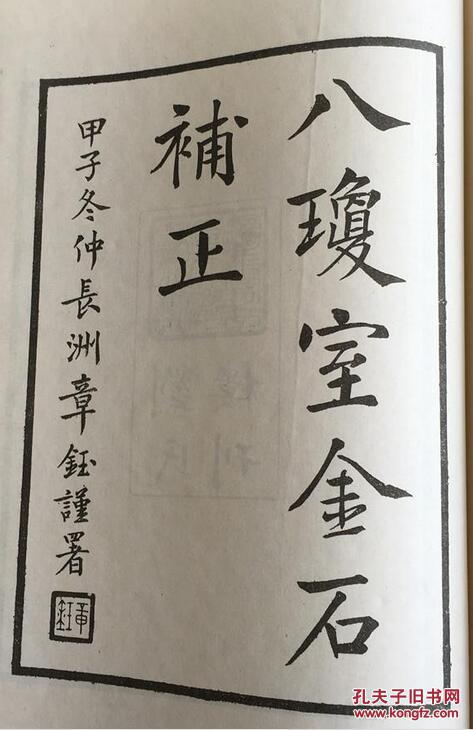 八瓊室金石
補正
甲子冬仲長洲章鈺謹署
章鈺
孔夫子旧书网
www.kongfz.com